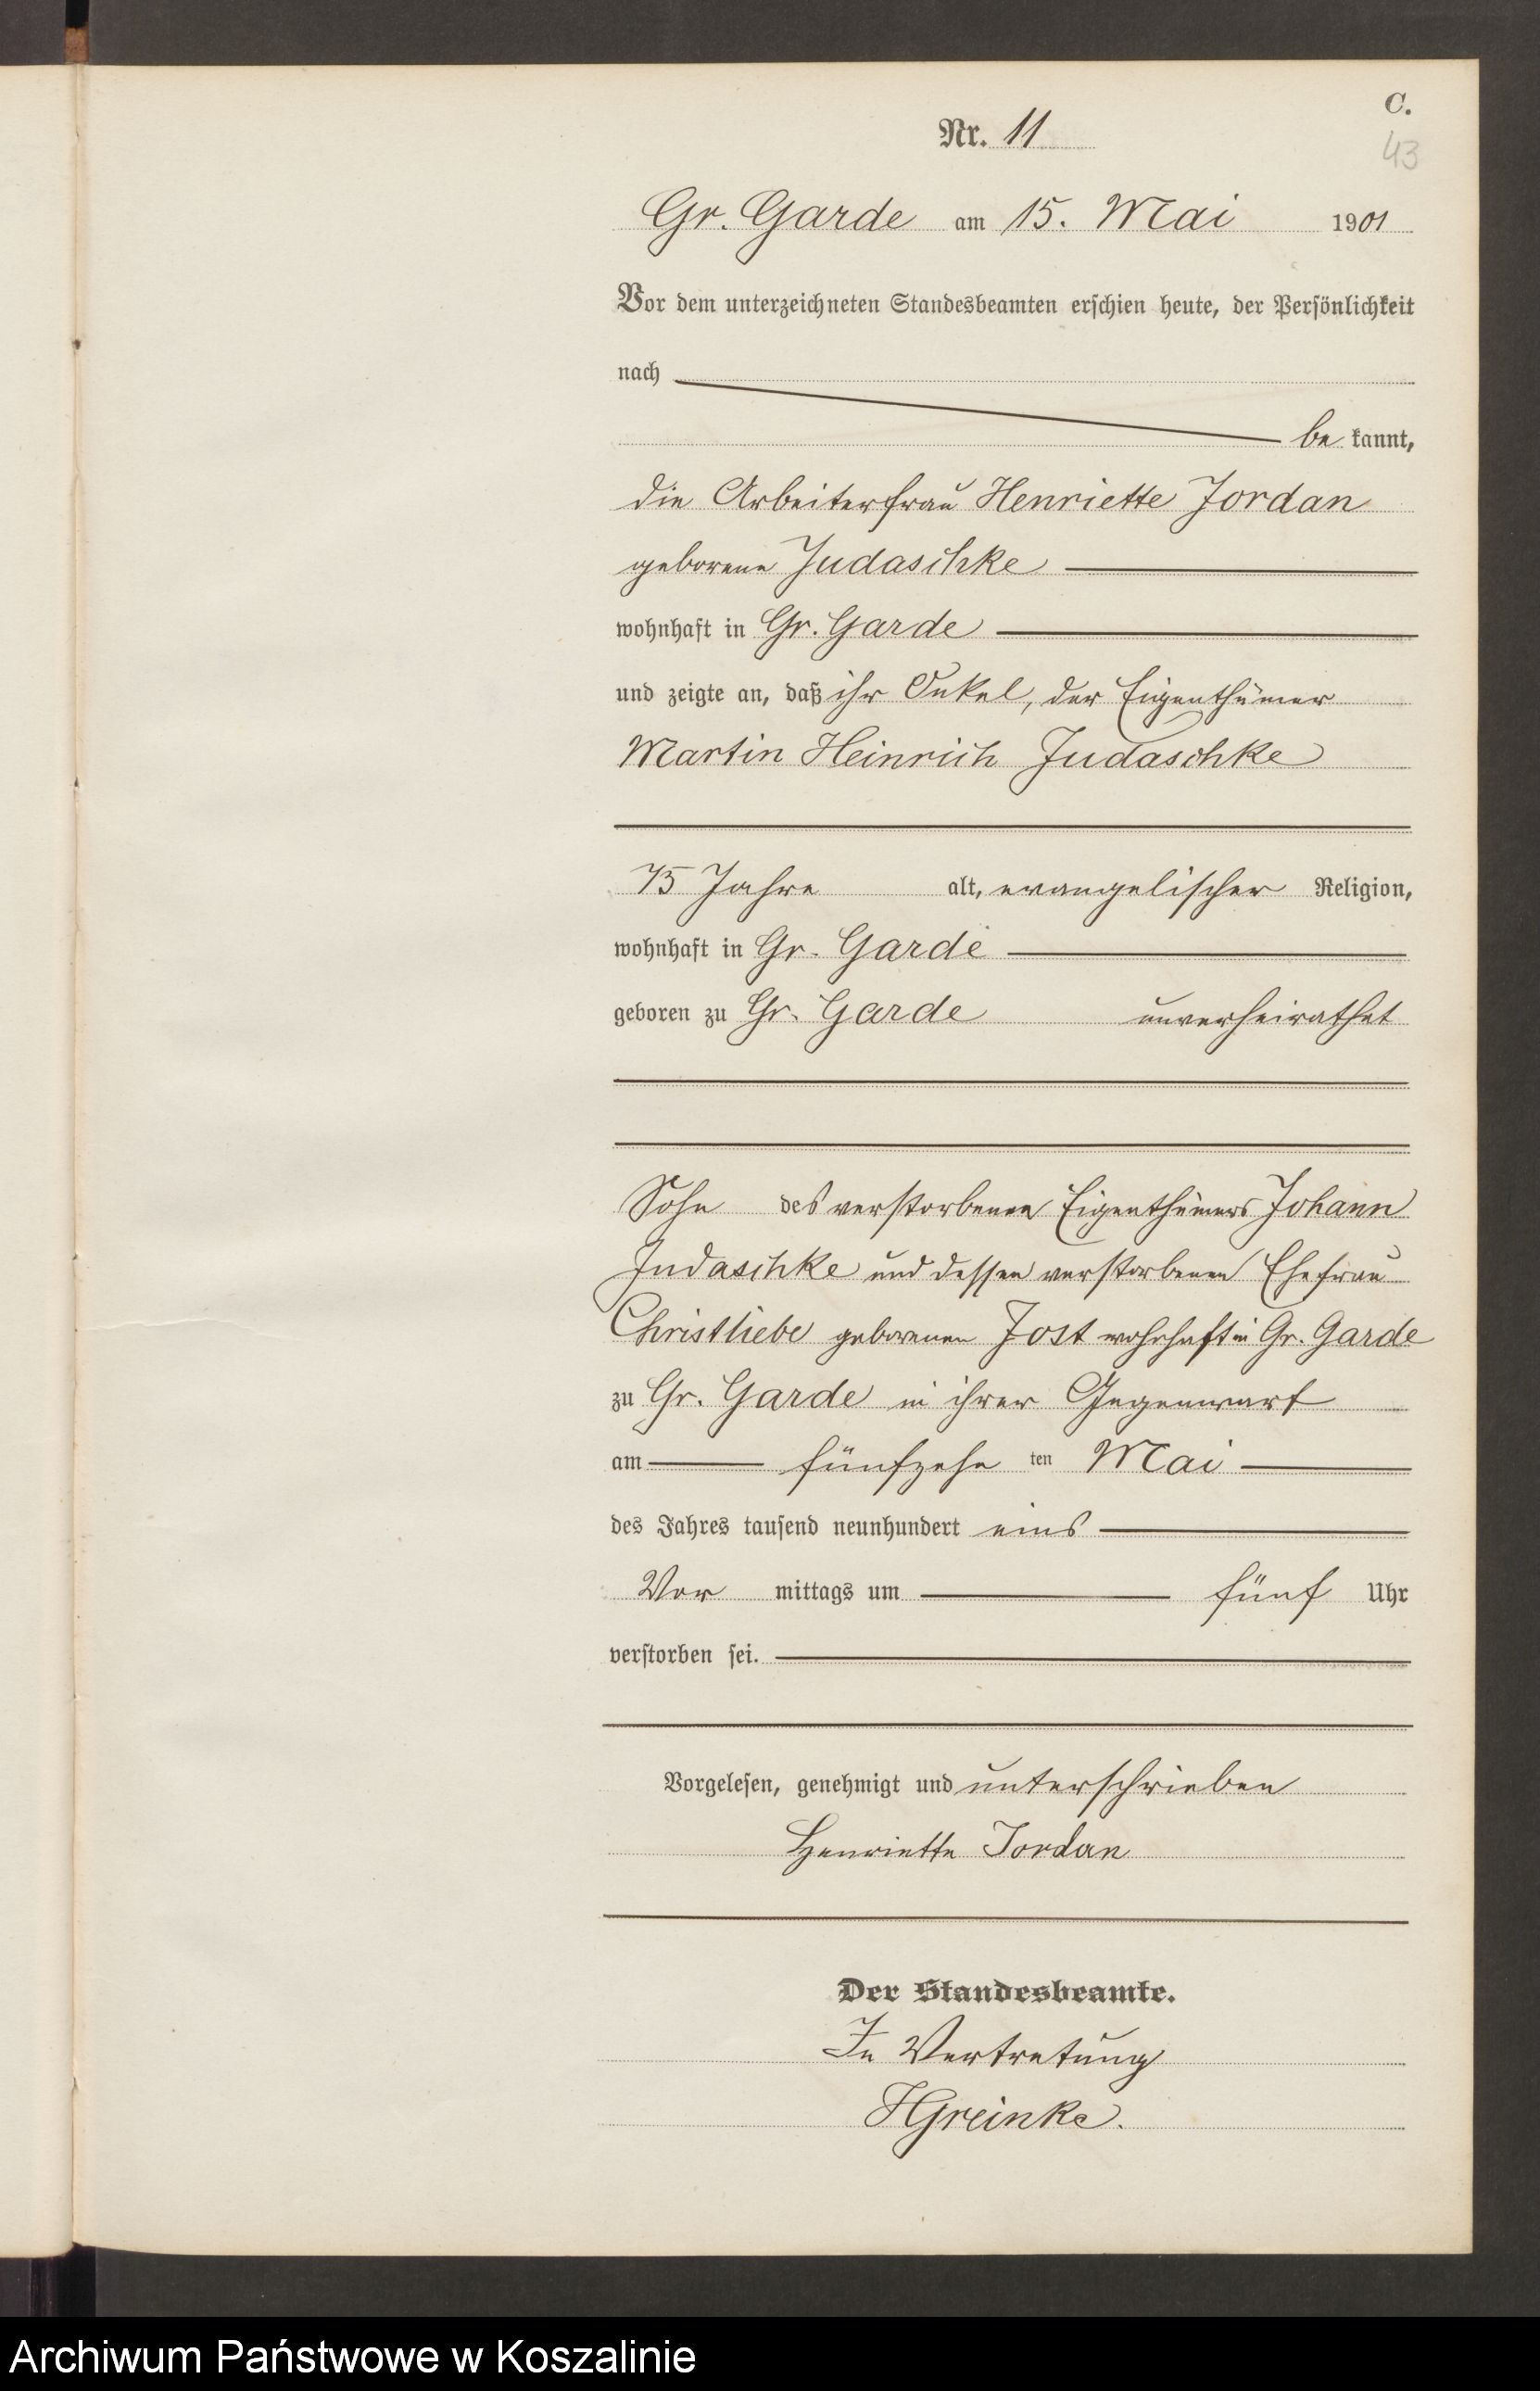 C.
Nr. 11
43
Gr. Garde am 15. Mai 1901
Vor dem unterzeichneten Standesbeamten erschien heute, der Persönlichkeit
nach
be kannt,
die Arbeiterfrau Henriette Jordan
geborene Judaschke
wohnhaft in Gr. Garde
und zeigte an, daß ihr Onkel, der Eigenthümer
Martin Heinrich Judaschke
75 Jahre alt, evangelischer Religion,
wohnhaft in Gr. Garde
geboren zu Gr. Garde unverheirathet
Sohn des verstorbenen Eigenthümers Johann
Judaschke und dessen verstorbenen Ehefrau
Christliebe geborenen Jost wohnhaft in Gr. Garde
zu Gr. Garde in ihrer Gegenwart
am fünfzehn ten Mai
des Jahres tausend neunhundert eins
Vor mittags um fünf Uhr
verstorben sei.
Vorgelesen, genehmigt und unterschrieben
Henriette Jordan
Der Standesbeamte.
In Vertretung
HGreinke.
Archiwum Państwowe w Koszalinie